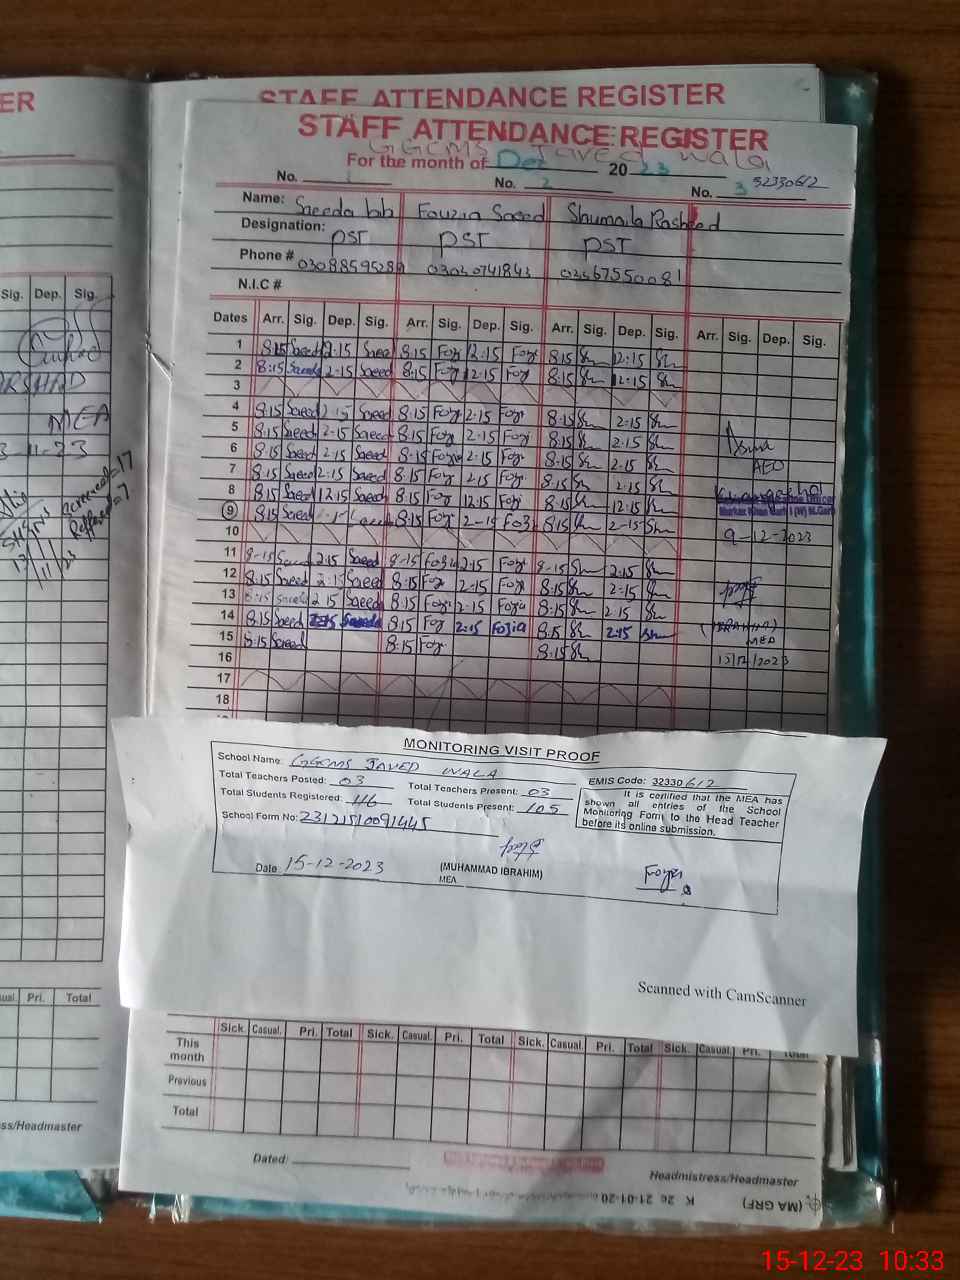 ER
STAFF ATTENDANCE REGISTER
STAFF ATTENDANCE REGISTER
GGCMS Javed wala
For the month of Dec 2023
No. 1 No. 2 No. 3 32330612
Name: Saeeda bb Fauzia Saeed Shumaila Rasheed
Designation: PST PST PST
Phone #
N.I.C #
Sig. Dep. Sig.
Dates Arr. Sig. Dep. Sig. Arr. Sig. Dep. Sig. Arr. Sig. Dep. Sig. Arr. Sig. Dep. Sig.
1 8:15 Saeed 12:15 Saeed 8:15 Fozi 12:15 Fozi 8:15 Sh 12:15 Sh
2 8:15 Saeeda 12:15 Saeed 8:15 Fozi 12:15 Foz 8:15 Sh 12:15 Sh
3
4 8:15 Saeed 2:15 Saeed 8:15 Fozi 2:15 Fozi 8:15 Sh 2:15 Sh
5 8:15 Saeed 2-15 Saeed 8:15 Foz 2:15 Fozi 8:15 Sh 2:15 Sh
6 8:15 Saeed 2:15 Saeed 8:15 Fozi 2:15 Foz 8:15 Sh 2:15 Sh
AEO
7 8:15 Saeed 2:15 Saeed 8:15 Foz 2:15 Foz 8:15 Sh 2:15 Sh
8 8:15 Saeed 12:15 Saeed 8:15 Foz 12:15 Fozi 8:15 Sh 12:15 Sh
9 8:15 Saeed 8:15 Foz 2-15 Fozi 8:15 Sh 2-15 Sh
10 9-12-2023
11 8-15 Saeed 2:15 Saeed 8-15 Fozia 2:15 Fozi 8-15 Sh 2:15 Sh
12 8:15 Saeed 2:15 Saeed 8:15 Foz 2:15 Fozi 8:15 Sh 2:15 Sh
13 8:15 Saeeda 2:15 Saeeda 8:15 Fozi 2:15 Fozia 8:15 Sh 2:15 Sh
14 8:15 Saeed 2:15 Saeeda 8:15 Foz 2:15 Fozia 8:15 Sh 2:15 Sh
(IBRAHIM)
MEA
15 8:15 Saeed 8:15 Foz 8:15 Sh
15/12/2023
16
17
18
MEA
3-11-23
Screened=17
Reffered=7
MONITORING VISIT PROOF
School Name: GGCMS JAVED WALA
EMIS Code: 32330612
Total Teachers Posted: 03 Total Teachers Present: 03
Total Students Registered: 116 Total Students Present: 105
It is certified that the MEA has
shown all entries of the School
Monitoring Form to the Head Teacher
before its online submission.
School Form No: 23121510091445
Date 15-12-2023
(MUHAMMAD IBRAHIM)
MEA
Scanned with CamScanner
Pri. Total
Sick. Casual. Pri. Total Sick. Casual. Pri. Total Sick. Casual. Pri. Total Sick. Casual. Pri. Total
This
month
Previous
Total
ss/Headmaster
Dated:
Headmistress/Headmaster
(MA GRF)
15-12-23 10:33